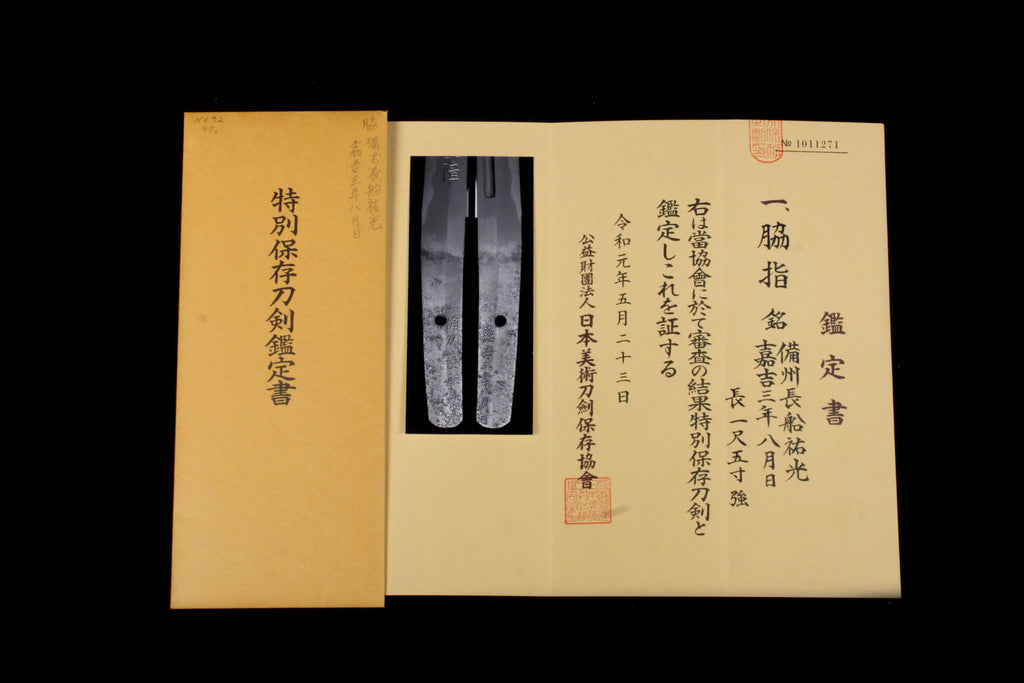 № 1011271
鑑定書
一、脇指 銘 備州長船祐光
嘉吉三年八月日
長一尺五寸強
右は當協會に於て審査の結果特別保存刀剣と
鑑定しこれを証する
令和元年五月二十三日
公益財團法人日本美術刀剣保存協會
脇 備州長船祐光
嘉吉三年八月日
特別保存刀剣鑑定書